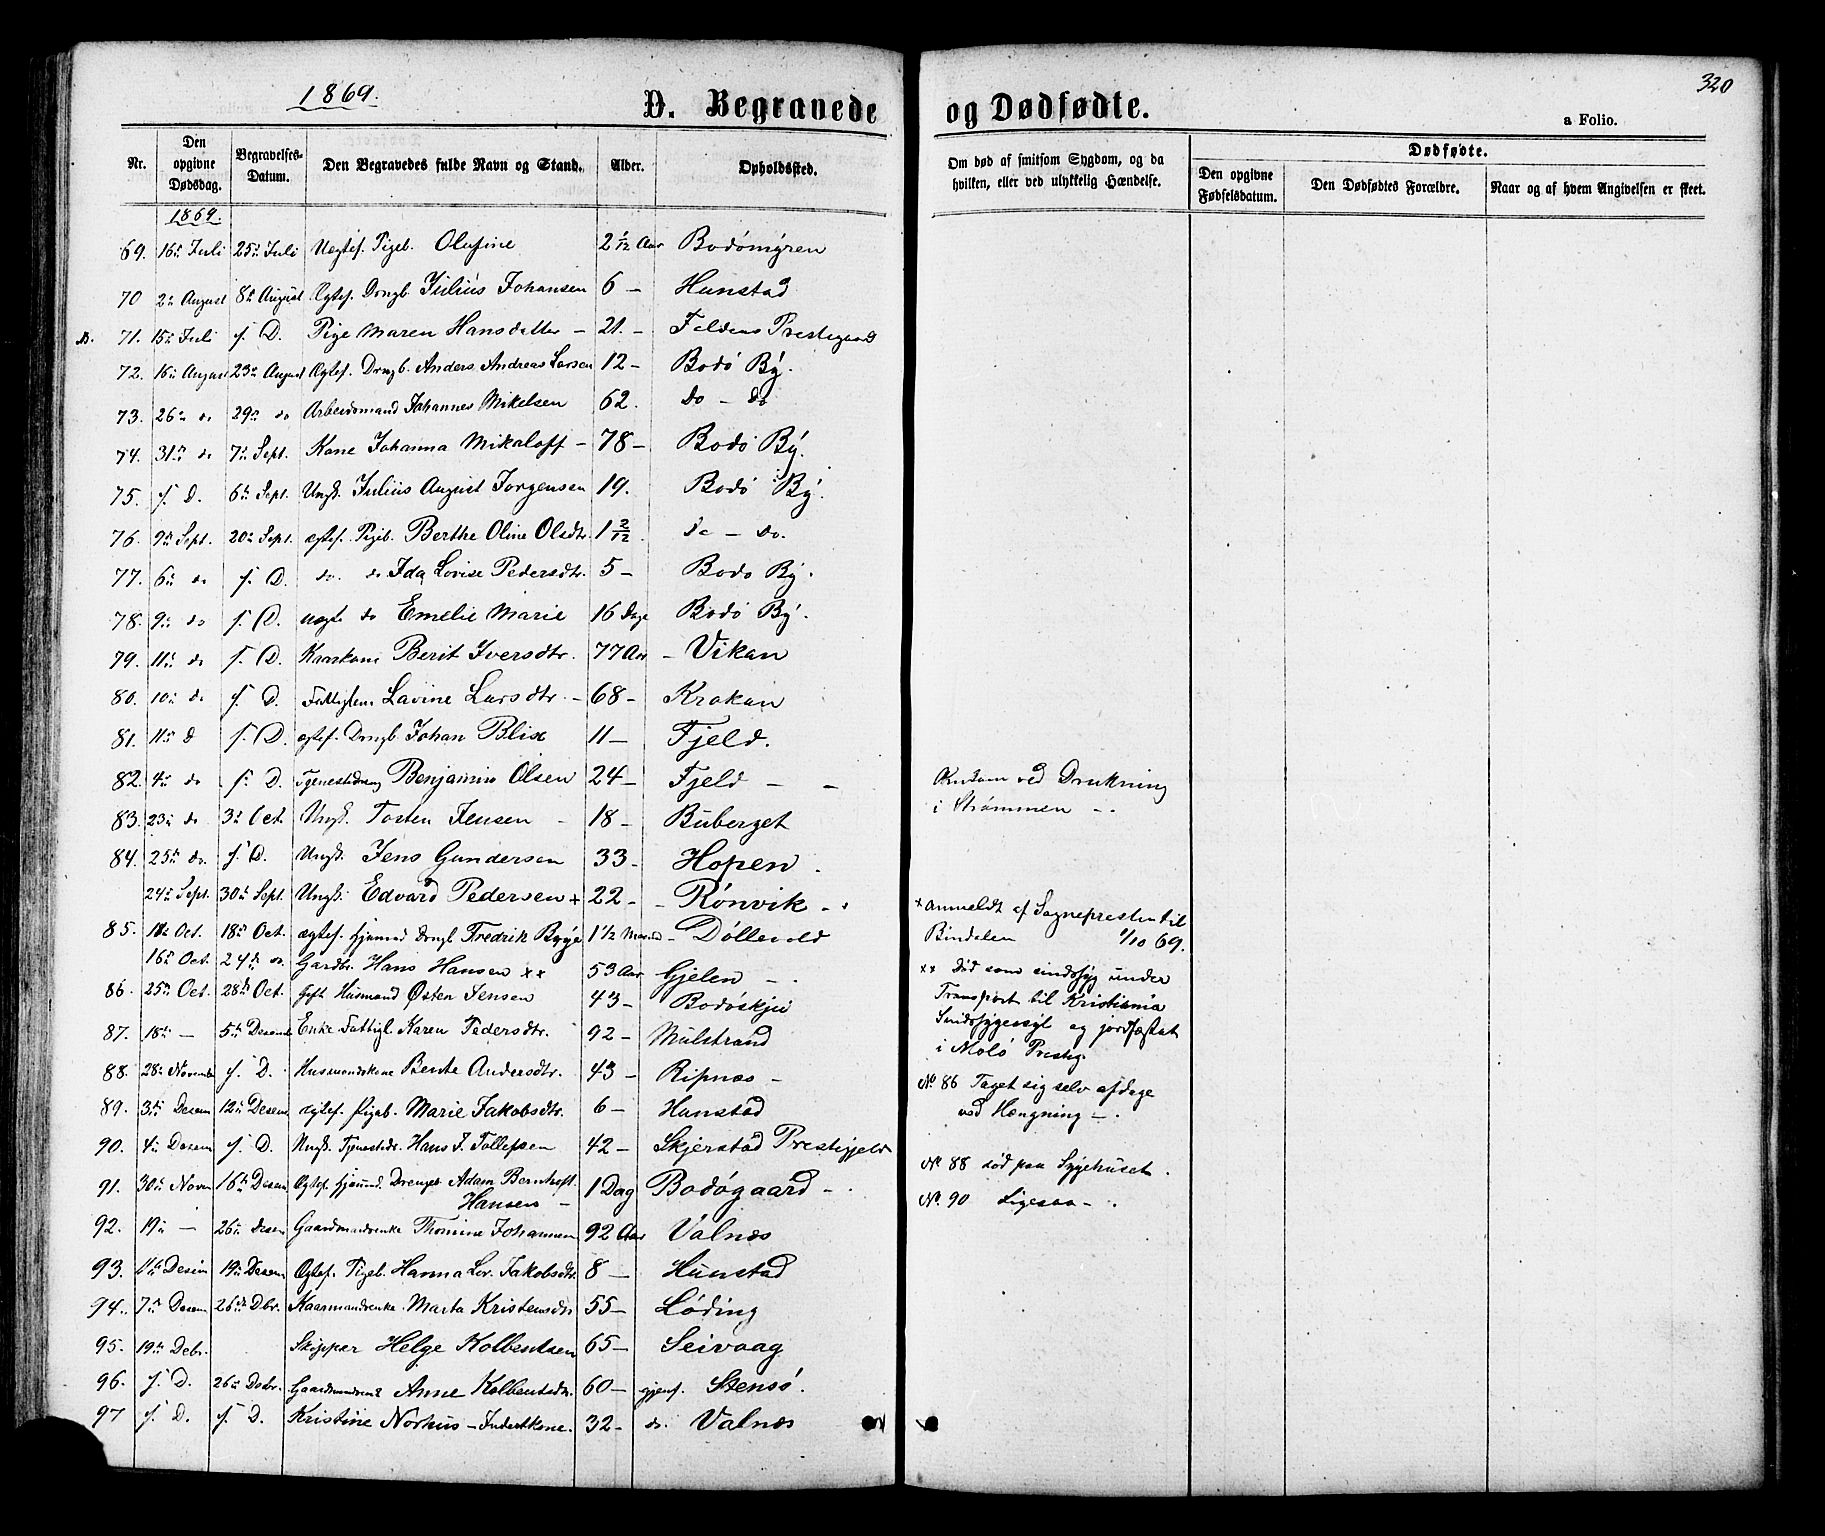 1869.
D. Begravede
og Dødfødte.
320
a Folio.
Nr.
Den opgivne Dødsdag.
Begravelses-Datum.
Den Begravedes fulde Navn og Stand.
Alder.
Opholdssted.
Om død af smitsom Sygdom, og da hvilken, eller ved ulykkelig Hændelse.
Dødfødte.
Den opgivne Fødselsdatum.
Den Dødfødtes Forældre.
Naar og af hvem Angivelsen er skeet.
1869.
69. 16de Juli 25de Juli Uegtef. Pigeb. Olufine 2 1/12 Aar Bodömyren
70 2de August 8de August Ægtef. Drngb. Julius Johansen 6 – Hunstad
71. 15de Juli s. D. Pige Maren Hansdatter – 21. – Foldens Prestegaard
72. 16de August 23de August Ægtef. Drngb. Anders Andreas Larsen 12 – Bodö By.
73. 26de do 29de do Arbeidsmand Johannes Mikelsen 62. do – do
74. 31te do 7de Sept. Kone Johanna Mikaloff – 78 – Bodö By.
75. s. D. 6te Sept. Ungk. Julius August Jorgensen 19. Bodö By.
76. 9de Sept. 20de Sept. ægtef. Pigeb. Berthe Oline Olsdtr. 1 2/12 do – do.
77. 6te do s. D. do. do Ida Lovise Pedersdtr. 5 – Bodo By.
78. 9de do s. D. uægte do Emelie Marie 16 Dage Bodö By.
79. 11te do s. D. Kaarkone Berit Iversdtr. 77 Aar – Vikan
80. 10de do s. D. Fattiglem Lavine Larsdtr. – 68 – Krokan
81. 11te d s. D. ægtef. Drngb. Johan Blix 11 – Fjeld.
82. 4de do s. D. Tjenestedreng Benjamin Olsen 24 – Fjeld –
Omkom ved Drukning
i Strömmen –
83. 23de do 3de Oct. Ungk. Tosten Jensen – 18 – Buberget
84. 25de do. s. D. Ungk. Jens Gundersen 33 – Hopen.
24de Sept. 30te Sept. Ungk. Edvard Pedersen + 22 – Rönvik –
+ anmeldt af Sognepresten til
Bindalen 1/10 69.
85. 11te Oct. 18de Oct. ægtef. hjemmd Drngb Fredrik Bygge 1 1/2 Maaned – Döllevold
16de Oct. 24de do. Gardbr. Hans Hansen ×× 53 Aar Gjelen –
×× Död som sindssyg under
Transport til Kristiania
Sindssygeasyl og jordfæstet
i Molö Prestg.
86. 25de Oct. 28de Oct. Gift Husmand Østen Jensen 43 – Bodöskjei
87. 18de – 5te Desemb Enke Fattigl. Karen Pedersdtr. 92 – Mulstrand
88. 28de November s. D. Husmandskone Bente Andersdtr. 43 – Ripnæs –
No 86 Taget sig selv afdage
ved Hængning –.
89. 3de Desem 12te Desem ægtef. Pigeb. Marie Jakobsdtr. 6 – Hunstad
90. 4de Desem s. D. Ungk. Tjenestedr. Hans J. Tollefsen 42 – Skjerstad Prestegjeld
No 88 död paa Sygehuset.
91. 30te Novm 16de Desem Ægtef. hjemmd. Drengeb Adam Bernhoft Hansen – 1 Dag Bodögaard –
No 90 Ligesaa –.
92. 19de – 26de Desem Gaardmandsenke Thomine Johannsen 92 Aar Valnæs
93. 11te Desem 19de Desem Ægtef. Pigeb. Hanna Lov. Jakobsdtr. 8 – Hunstad
94. 7de Desem 26de Dbr. Kaarmandsenke Marta Kristensdtr 55 – Löding
95. 19de Debr. Skipper Helge Kolbentsen 65 – Seivaag
96. s. D. 26de Desbr. Gaardmandsenk Anne Kolbentsdtr. 60 – gjenf. Stensö.
97 s. D. s. D. Kristine Norhus – Inderstkone. 32 – do. Valnæs